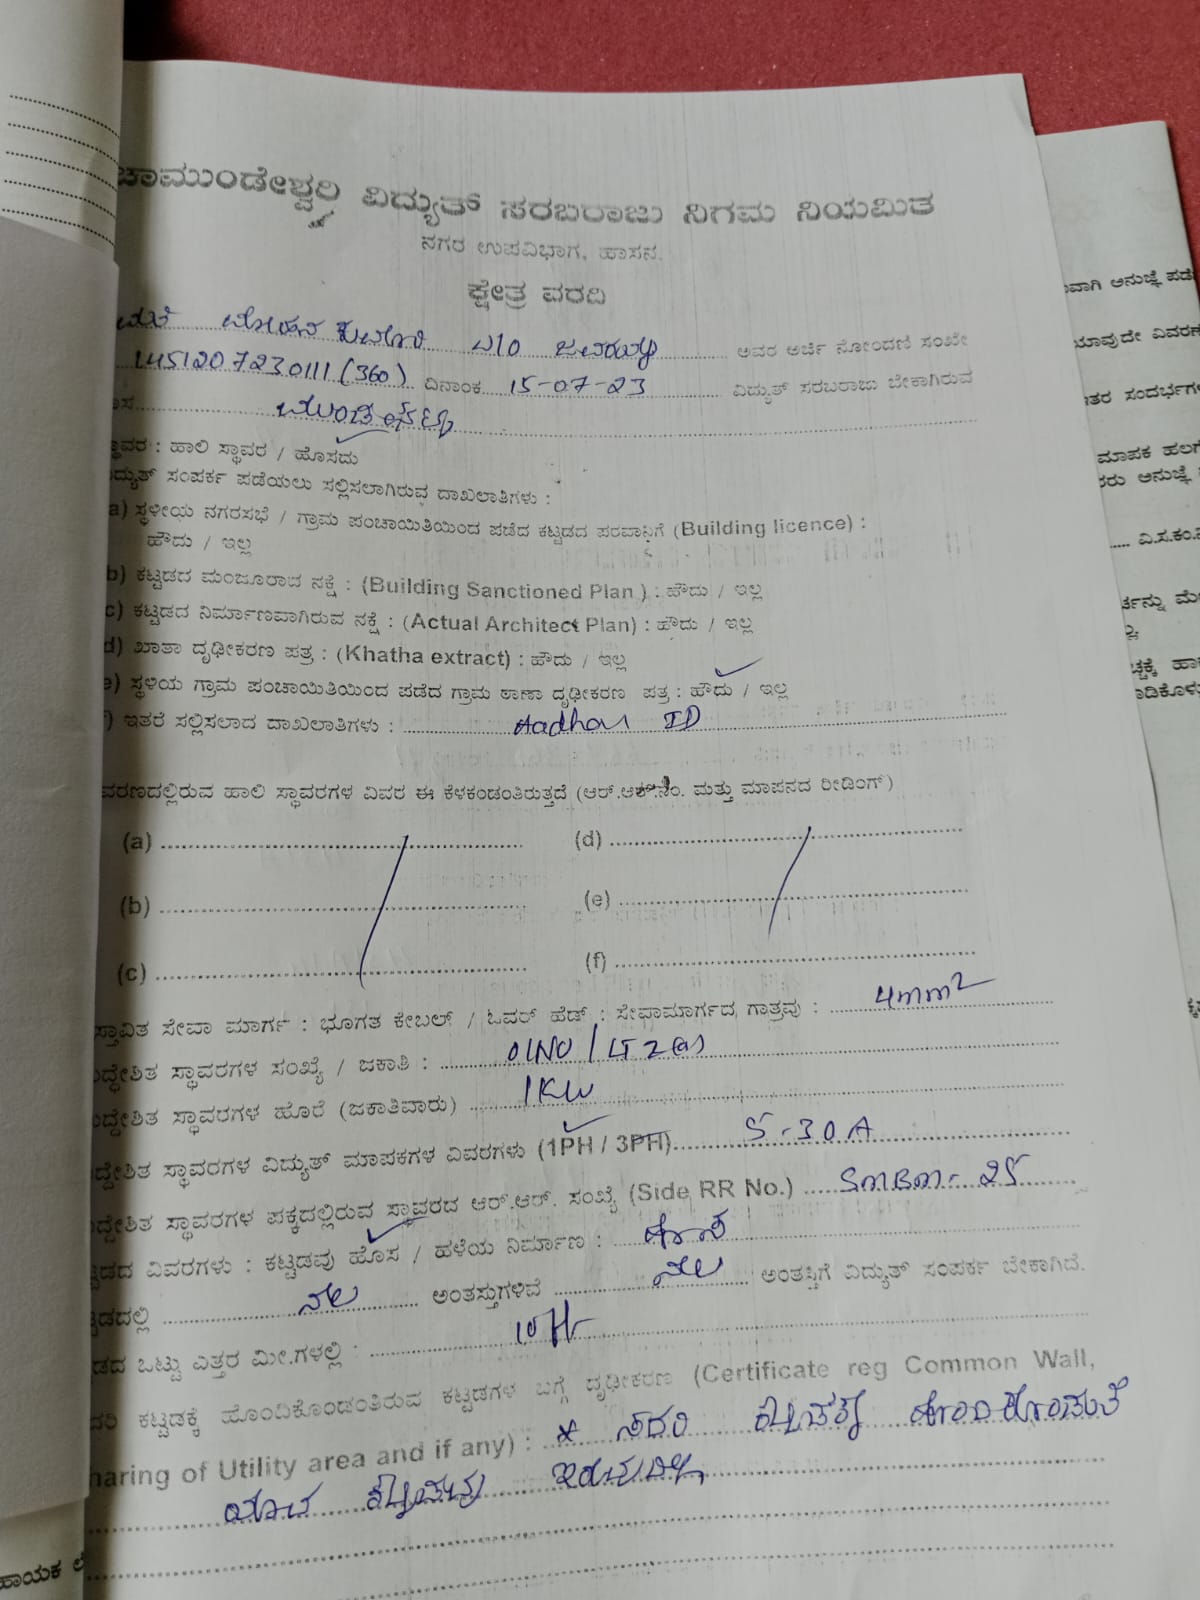 ಚಾಮುಂಡೇಶ್ವರಿ ವಿದ್ಯುತ್ ಸರಬರಾಜು ನಿಗಮ ನಿಯಮಿತ
ನಗರ ಉಪವಿಭಾಗ, ಹಾಸನ.
ಕ್ಷೇತ್ರ ವರದಿ
ಅವರ ಅರ್ಜಿ ನೋಂದಣಿ ಸಂಖೇ
1451207230111 (360) ದಿನಾಂಕ 15-07-23 ವಿದ್ಯುತ್ ಸರಬರಾಜು ಬೇಕಾಗಿರುವ
ಸ್ಥಾವರ : ಹಾಲಿ ಸ್ಥಾವರ / ಹೊಸದು
ದ್ಯುತ್ ಸಂಪರ್ಕ ಪಡೆಯಲು ಸಲ್ಲಿಸಲಾಗಿರುವ ದಾಖಲಾತಿಗಳು :
a) ಸ್ಥಳೀಯ ನಗರಸಭೆ / ಗ್ರಾಮ ಪಂಚಾಯಿತಿಯಿಂದ ಪಡೆದ ಕಟ್ಟಡದ ಪರವಾನ್ಗಿಗೆ (Building licence) :
ಹೌದು / ಇಲ್ಲ
b) ಕಟ್ಟಡದ ಮಂಜೂರಾದ ನಕ್ಷೆ : (Building Sanctioned Plan ) : ಹೌದು / ಇಲ್ಲ
c) ಕಟ್ಟಡದ ನಿರ್ಮಾಣವಾಗಿರುವ ನಕ್ಷೆ : (Actual Architect Plan) : ಹೌದು / ಇಲ್ಲ
d) ಖಾತಾ ದೃಢೀಕರಣ ಪತ್ರ : (Khatha extract) : ಹೌದು / ಇಲ್ಲ
e) ಸ್ಥಳಿಯ ಗ್ರಾಮ ಪಂಚಾಯಿತಿಯಿಂದ ಪಡೆದ ಗ್ರಾಮ ಠಾಣಾ ದೃಢೀಕರಣ ಪತ್ರ : ಹೌದು / ಇಲ್ಲ
) ಇತರೆ ಸಲ್ಲಿಸಲಾದ ದಾಖಲಾತಿಗಳು : Aadhar ID
ವರಣದಲ್ಲಿರುವ ಹಾಲಿ ಸ್ಥಾವರಗಳ ವಿವರ ಈ ಕೆಳಕಂಡಂತಿರುತ್ತದೆ (ಆರ್.ಆರ್.ನಂ. ಮತ್ತು ಮಾಪನದ ರೀಡಿಂಗ್)
(a) (d)
(b) (e)
(c) (f)
ಸ್ತಾವಿತ ಸೇವಾ ಮಾರ್ಗ : ಭೂಗತ ಕೇಬಲ್ / ಓವರ್ ಹೆಡ್ : ಸೇವಾಮಾರ್ಗದ ಗಾತ್ರವು : 4mm2
ದ್ದೇಶಿತ ಸ್ಥಾವರಗಳ ಸಂಖ್ಯೆ / ಜಕಾತಿ : 01NO / LT 2(a)
ದ್ದೇಶಿತ ಸ್ಥಾವರಗಳ ಹೊರೆ (ಜಕಾತಿವಾರು) 1KW
ದ್ದೇಶಿತ ಸ್ಥಾವರಗಳ ವಿದ್ಯುತ್ ಮಾಪಕಗಳ ವಿವರಗಳು (1PH / 3PH) 5-30A
ದ್ದೇಶಿತ ಸ್ಥಾವರಗಳ ಪಕ್ಕದಲ್ಲಿರುವ ಸ್ಥಾವರದ ಆರ್.ಆರ್. ಸಂಖ್ಯೆ (Side RR No.) SMBM-25
ಟ್ಟಡದ ವಿವರಗಳು : ಕಟ್ಟಡವು ಹೊಸ / ಹಳೆಯ ನಿರ್ಮಾಣ : ಹೊಸ
ಟ್ಟಡದಲ್ಲಿ ನೆಲ ಅಂತಸ್ತುಗಳಿವೆ ನೆಲ ಅಂತಸ್ತಿಗೆ ವಿದ್ಯುತ್ ಸಂಪರ್ಕ ಬೇಕಾಗಿದೆ.
ಡದ ಒಟ್ಟು ಎತ್ತರ ಮೀ.ಗಳಲ್ಲಿ : 10ft
ದರಿ ಕಟ್ಟಡಕ್ಕೆ ಹೊಂದಿಕೊಂಡಂತಿರುವ ಕಟ್ಟಡಗಳ ಬಗ್ಗೆ ದೃಢೀಕರಣ (Certificate reg Common Wall,
haring of Utility area and if any) : * ಸದರಿ ಕಟ್ಟಡಕ್ಕೆ ಹೊಂದಿಕೊಂಡಂತೆ
ಯಾವ ಕಟ್ಟಡವು ಇರುವುದಿಲ್ಲ